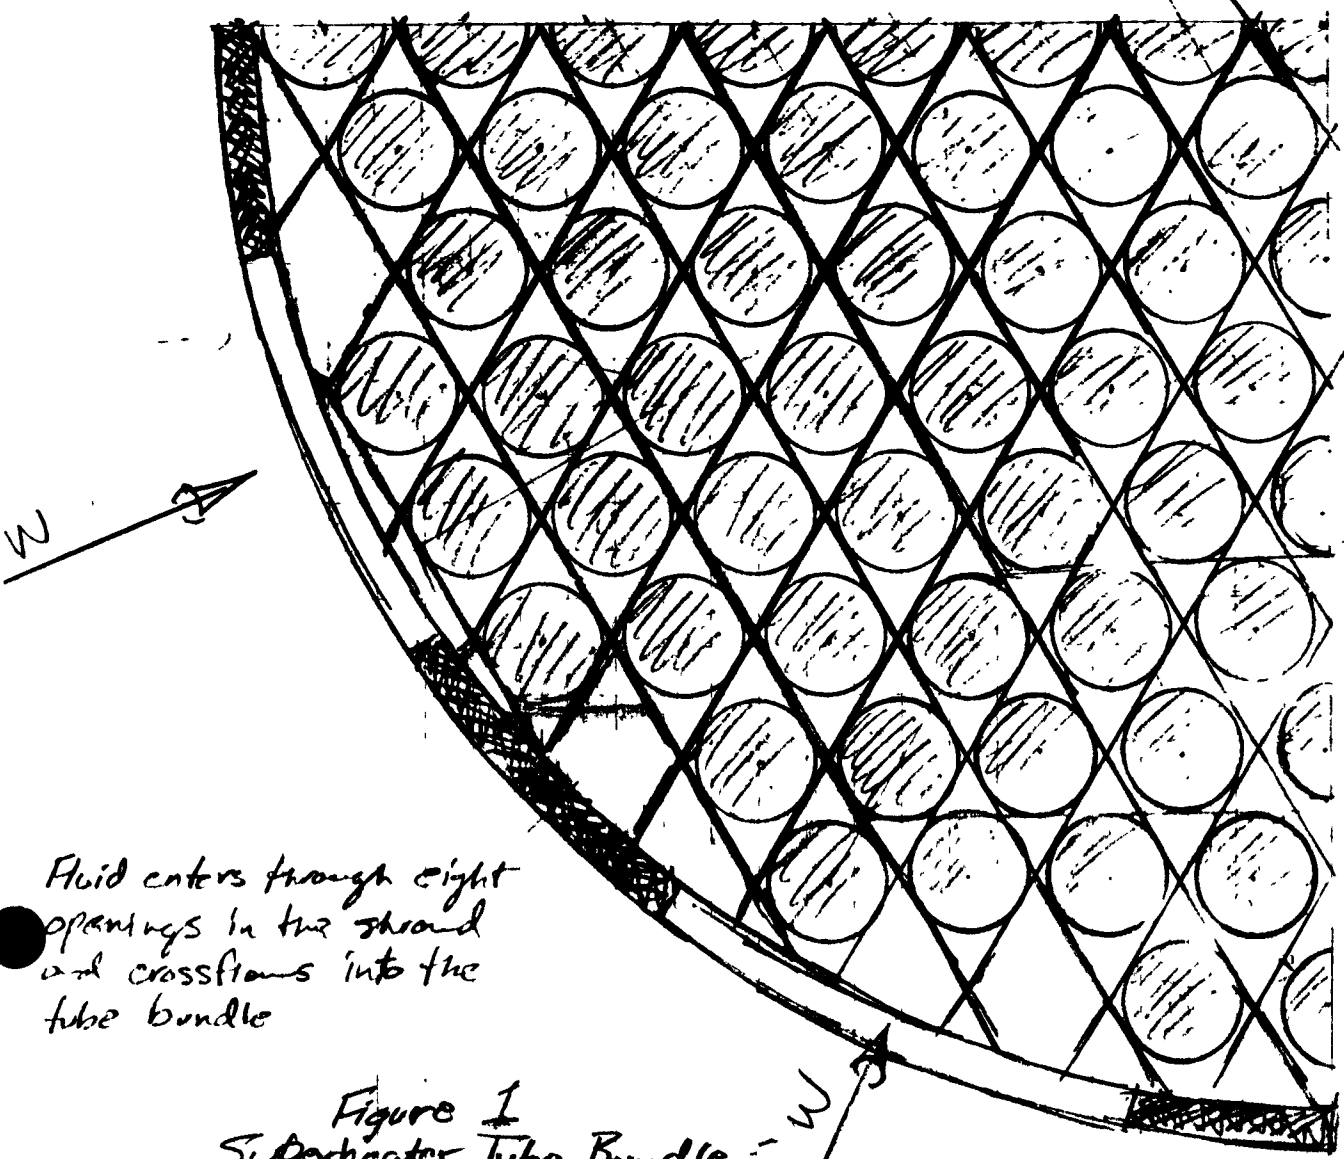 W
Fluid enters through eight
openings in the shroud
and crossflows into the
tube bundle
W
Figure 1
Superheater Tube Bundle